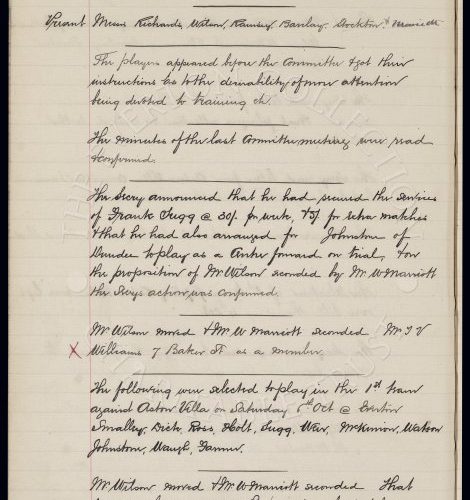 Present Messrs Richards, Wilson, Ramsey, Barclay, Stockton &
The players appeared before the Committee & got their
instructions as to the desirability of more attention
being devoted to training etc.
The minutes of the last Committee meeting were read
& confirmed.
The Secry announced that he had secured the services
of Frank Sugg @ 30/- per week, & 5/- for extra matches
& that he had also arranged for Johnstone of
Dundee to play as a centre forward on trial, & on
the proposition of Mr Wilson seconded by Mr W Marriott
the Secrys action was confirmed.
Mr Wilson moved & Mr W Marriott seconded Mr J V
X Williams 7 Baker St as a member.
The following were selected to play in the 1st team
against Aston Villa on Saturday 6th Oct @ Everton
Smalley, Dick, Ross, Holt, Sugg, Weir, McKinnon, Watson
Johnstone, Waugh, Farmer.
Mr Wilson moved & Mr W Marriott seconded That